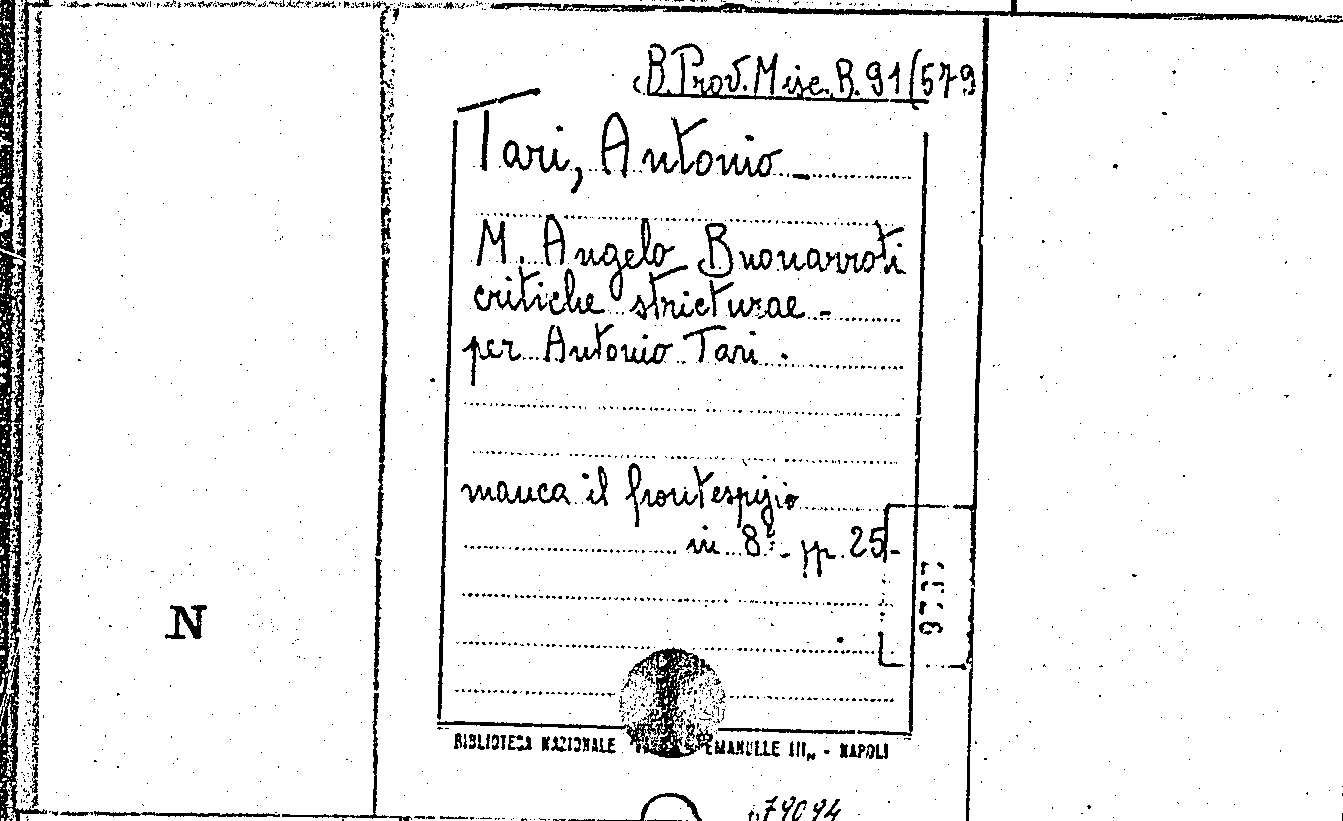 B. Prov. Misc. B. 91(579
Tari, Antonio -
M. Angelo Buonarroti
critiche stricturae -
per Antonio Tari.
manca il frontespizio
in 8º - pp. 25 -
N
BIBLIOTECA NAZIONALE EMANUELE III„ - NAPOLI
679094